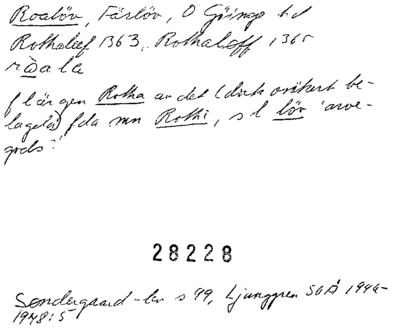 Roalöv, Färlöv, Ö Göinge hd
Rothalef 1363, Rothaleff 1365
ròala
f l är gen Rotha av det (dock osäkert be-
lagda) fda mn Rothi, s l löv 'arve-
gods'.
28228
Søndergaard -lev s 99, Ljunggren SOÅ 1946-
1948:5